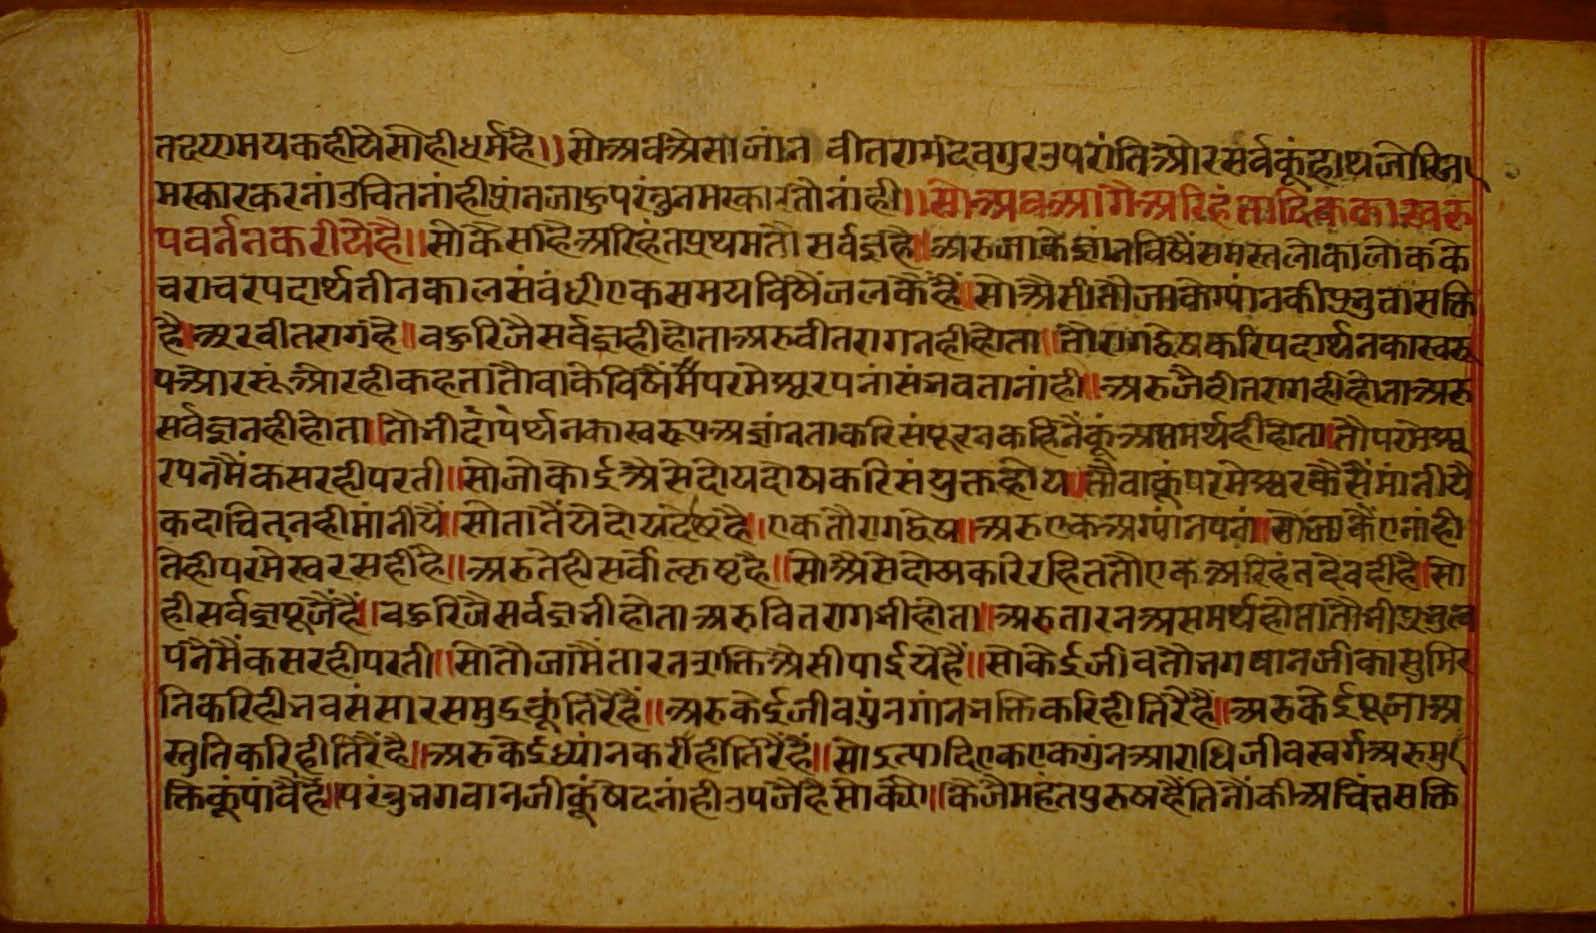 तदयामयकहीयैसोहीधर्महै॥सोअवअैसाजांन वीतरागदेवगुरउपरांतिऔरसर्वकूंहाथजोरिन
मस्कारकरनांउचितनांहीप्रांनजाउपरंतुनमस्कारतौनांही॥सोअवआगैअरिहंतादिककास्वरु
पवर्ननकरीयैहै॥सोकैसाहैअरिहंतप्रथमतौसर्वज्ञहै॥अरुजाकेज्ञांनविषैंसमस्तलोकालोकके
चराचरपदार्थतीनकालसंवंधीएकसमयविषैंजलकैंहैं॥सोअैसीतौजाकेग्यांनकीप्रभुतासक्ति
है॥अरवीतरागहै॥वहुरिजैसर्वज्ञहीहोताअरुवीतरागनहीहोता॥तौरागद्वेषकरिपदार्थनकास्वरू
पऔरसूंऔरहीकहतातौवाकेविषैंमैंपरमेश्वरपनांसंभवतानांही॥अरुजैवीतरागहीहोताअरु
सर्वज्ञनहीहोता॥तौभीपदार्थनकास्वरूपअज्ञांनताकरिसंपूरनकहिनैंकूंअसमर्थहीहोता॥तौपरमेश्व
रपनमैंकसरहीपरती॥सोजोकोईअैसेदोयदोषकरिसंयुक्तहोय॥तौवाकूंपरमेश्वरकैसैंमांनीयै
कदाचित्नहीमांनीयैं॥सोतातैंयेदोयदोषहै॥एकतौरागद्वेष॥अरुएकअग्यांनपनां॥सोजाकैंएनांही
तेहीपरमेस्वरसहीहै॥अरुतेहीसर्वोत्कृष्टहै॥सोअैसेदोषकरिरहिततौएकअरिहंतदेवहीहै॥सो
हीसर्वज्ञपूजैंहैं॥वहुरिजैसर्वज्ञभीहोताअरुवितरागभीहोता॥अरुतारनअसमर्थहोतातौभीप्रभुत्व
पनैमैंकसरहीपरती॥सोतौजामैंतारनशक्तिअैसीपाईयेहैं॥सोकेईजीवतौभगवानजीकासुमिर
निकरिहीभवसंसारसमुद्रकूंतिरैहैं॥अरुकेईजीवगुंनगांनभक्तिकरिहीतिरैहैं॥अरुकेईपूजाअ
स्तुतिकरिहीतिरैंहै॥अरुकेईध्यांनकरिहीतिरैंहैं॥सोइत्यादिएकएकगुंनआराधिजीवस्वर्गअरुमु
क्तिकूंपांवैंहैं॥परंतुभगवानजीकूंषेदनांहीउपजैहैसोक्यों॥कैजैमहंतपुरुषहैंतिनौंकीअचिंतसक्ति